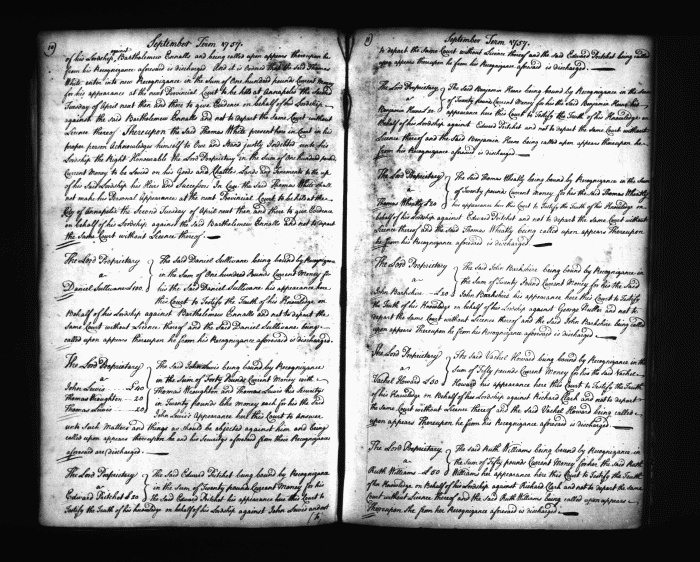 10
September Term 1757.
of his Lordship against Bartholemew Ennalls and being called upon appears thereupon he
from his Recognizance aforesaid is discharged. And it is Ordered that the said Thomas
White enter into new Recognizance in the Sum of One hundred pounds Current Money
for his appearance at the next Provincial Court to be held at Annapolis the Second
Tuesday of April next then and there to give Evidence in behalf of his Lordship
against the said Bartholemew Ennalls and not to depart the same Court without
Licence thereof Whereupon the said Thomas White present here in Court in his
proper person acknowledges himself to Owe and Stand justly Indebted unto his
Lordship the Right Honourable the Lord Proprietary in the Sum of One hundred pounds
Current Money to be Levied on his Goods and Chattles Lands and Tenements to the use
of his Said Lordship his Heirs and Successors In Case the said Thomas White shall
not make his Personal Appearance at the next Provincial Court to be held at the
City of Annapolis the Second Tuesday of April next then and there to give Evidence
on behalf of his Lordship against the said Bartholemew Ennalls and not to depart
the same Court without Licence thereof.
The Lord Proprietary
a
Daniel Sullivane £100
The Said Daniel Sullivane being bound by Recognizance
in the Sum of One hundred Pounds Current Money for
the said Daniel Sullivane his appearance here
this Court to Testify the Truth of his Knowledge on
Behalf of his Lordship against Bartholemew Ennalls and not to depart the
Same Court without Licence thereof and the said Daniel Sullivane being
called upon appears Thereupon he from his Recognizance aforesaid is discharged.
The Lord Proprietary
a
John Lewis £40
Thomas Woughton 20
Thomas Lewis 20
The said John Lewis being bound by Recognizance
in the Sum of Forty Pounds Current Money with
Thomas Woughton and Thomas Lewis his Security
in Twenty pounds like Money each for his the said
John Lewis's Appearance here this Court to answer
unto Such Matters and things as should be objected against him and being
called upon appears thereupon he and his Securitys aforesaid from their Recognizance
aforesaid are discharged.
The Lord Proprietary
a
Edward Pritchet £20
The Said Edward Pritchet being bound by Recognizance
in the Sum of Twenty pounds Current Money for his
the Said Edward Pritchet his appearance here this Court to
Testify the Truth of his knowledge on behalf of his Lordship against John Lewis and not
to
11
September Term 1757.
to depart the Same Court without Licence thereof and the said Edward Pritchet being called
upon appears thereupon he from his Recognizance aforesaid is discharged.
The Lord Proprietary
a
Benjamin £20
The Said Benjamin being bound by Recognizance in the Sum
of Twenty pounds Current Money for the said Benjamin his
appearance here this Court to Testify the Truth of his Knowledge on
behalf of his Lordship against Edward Pritchet and not to depart the same Court without
Licence thereof and the Said Benjamin being called upon appears thereupon he
from his Recognizance aforesaid is discharged.
The Lord Proprietary
a
Thomas Wheatly £20
The Said Thomas Wheatly being bound by Recognizance in the Sum
of Twenty pounds Current Money for the said Thomas Wheatly
his appearance here this Court to Testify the Truth of his Knowledge on
behalf of his Lordship against Edward Pritchet and not to depart the same Court without
Licence thereof and the said Thomas Wheatly being called upon appears Thereupon
he from his Recognizance aforesaid is discharged.
The Lord Proprietary
a
John Barkshire £20
The Said John Barkshire being bound by Recognizance in
the Sum of Twenty Pound Current Money for the said
John Barkshire his appearance here this Court to Testify
the Truth of his Knowledge on behalf of his Lordship against George and not to
depart the same Court without Licence thereof and the said John Barkshire being called
upon appears Thereupon he from his Recognizance aforesaid is discharged.
The Lord Proprietary
a
Vachel Howard £50
The Said Vachel Howard being bound by Recognizance in the
Sum of Fifty pounds Current Money for the said Vachel
Howard his appearance here this Court to Testify the Truth
of his Knowledge on Behalf of his Lordship against Richard Clark and not to depart
the same Court without Licence thereof and the Said Vachel Howard being called
upon appears Thereupon he from his Recognizance aforesaid is discharged.
The Lord Proprietary
a
Ruth Williams £50
The said Ruth Williams being bound by Recognizance in
the Sum of Fifty pounds Current Money for her the said Ruth
Williams her appearance here this Court to Testify the Truth
of her Knowledge on Behalf of his Lordship against Richard Clark and not to depart the same
Court without Licence thereof and the said Ruth Williams being called upon appears
Thereupon She from her Recognizance aforesaid is discharged.